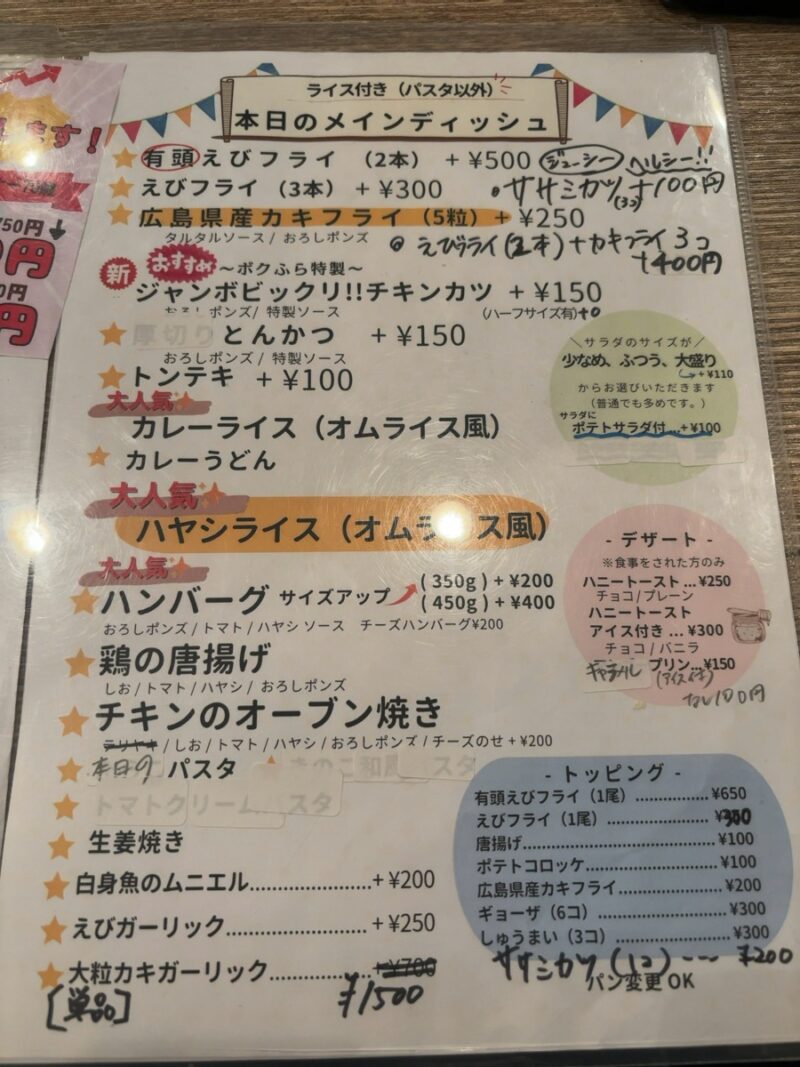 ます！
750円
円
円
円
ライス付き（パスタ以外）
本日のメインディッシュ
有頭えびフライ （2本） + ¥500 ジューシー ヘルシー!!
えびフライ（3本）+ ¥300 ・ササミカツ(3コ)+100円
広島県産カキフライ（5粒）+ ¥250
タルタルソース / おろしポンズ
えびフライ(2本)+カキフライ3コ
+400円
新 おすすめ ～ボクふら特製～
ジャンボビックリ!!チキンカツ + ¥150
おろしポンズ/ 特製ソース （ハーフサイズ有）+0
厚切りとんかつ + ¥150
おろしポンズ / 特製ソース
トンテキ + ¥100
大人気
カレーライス（オムライス風）
カレーうどん
大人気
ハヤシライス（オムライス風）
大人気
ハンバーグ サイズアップ (350g) + ¥200
(450g) + ¥400
おろしポンズ / トマト / ハヤシ ソース チーズハンバーグ¥200
鶏の唐揚げ
しお / トマト / ハヤシ / おろしポンズ
チキンのオーブン焼き
テリヤキ / しお / トマト / ハヤシ / おろしポンズ / チーズのせ + ¥200
本日の パスタ
トマトクリームパスタ
生姜焼き
白身魚のムニエル……………… + ¥200
えびガーリック………………… + ¥250
大粒カキガーリック…………… +¥700
[単品] ¥1500
＼サラダのサイズが／
少なめ、ふつう、大盛り
+ ¥110
からお選びいただきます
（普通でも多めです。）
サラダに
ポテトサラダ付…+ ¥100
- デザート -
※食事をされた方のみ
ハニートースト…¥250
チョコ / プレーン
ハニートースト
アイス付き…¥300
チョコ / バニラ
プリン…¥150
(アイス付)
なし100円
- トッピング -
有頭えびフライ（1尾）……………¥650
えびフライ（1尾）………………¥300
唐揚げ……………………………¥100
ポテトコロッケ…………………¥100
広島県産カキフライ……………¥200
ギョーザ（6コ）…………………¥300
しゅうまい（3コ）………………¥300
ササミカツ(1コ)--- ¥200
パン変更 OK